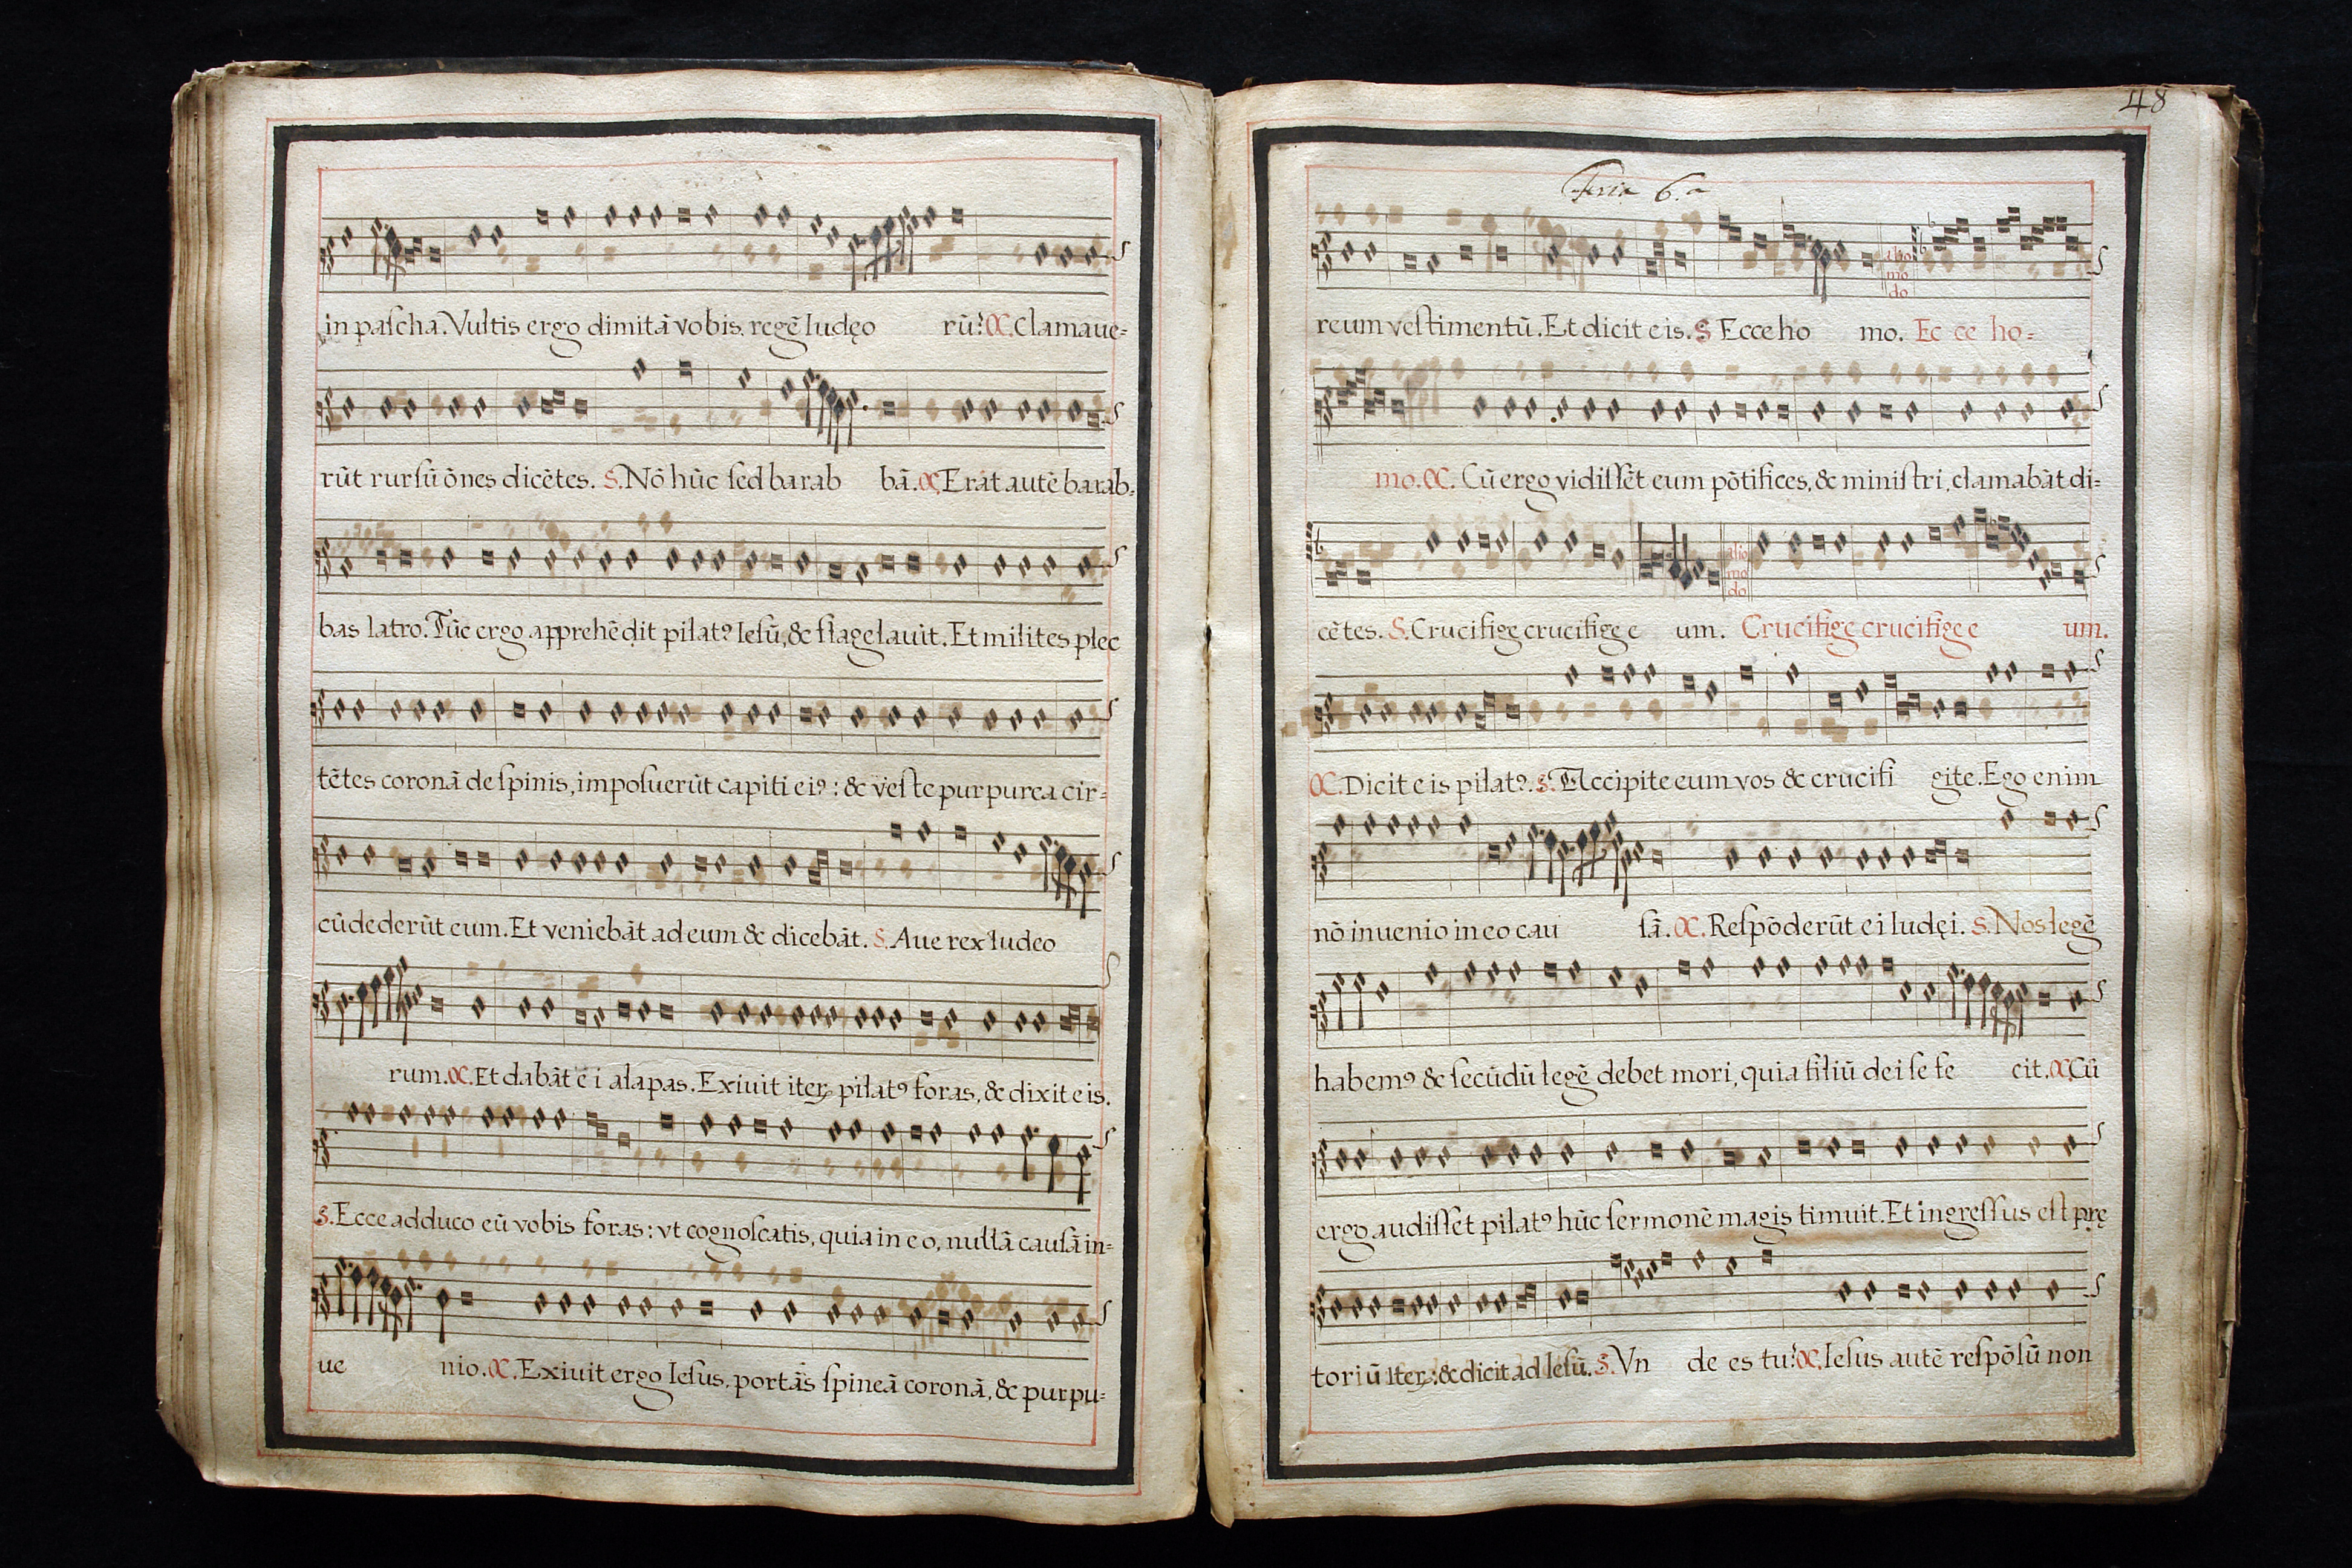 in paſcha. Vultis ergo dimitā vobis regē Iudęo rū? C. Clamaue=
rūt rurſū ōnes dicētes. S. Nō hūc ſed barab bā. C. Erat autē barab=
bas latro. Tūc ergo apprehēdit pilatꝰ Ieſū, & flagelauit. Et milites plec
tētes coronā de ſpinis, impoſuerūt capiti eiꝰ: & veſte purpurea cir=
cūdederūt eum. Et veniebāt ad eum & dicebāt. S. Aue rex Iudeo
rum. C. Et dabāt ei alapas. Exiuit iteꝝ pilatꝰ foras, & dixit eis.
S. Ecce adduco eū vobis foras: vt cognoſcatis, quia in eo, nullā cauſā in=
ue nio. C. Exiuit ergo Ieſus, portās ſpineā coronā, & purpu=
48
Feria 6.a
alio
mo
do
reum veſtimentū. Et dicit eis. S Ecce ho mo. Ec ce ho=
mo. C. Cū ergo vidiſſēt eum pōtifices, & miniſtri, clamabāt di=
alio
mo
do
cētes. S. Crucifige crucifige e um. Crucifige crucifige e um.
C. Dicit eis pilatꝰ. S. Accipite eum vos & crucifi gite. Ego enim
nō inuenio in eo cau ſā. C. Reſpōderūt ei Iudęi. S. Nos legē
habemꝰ & ſecūdū legē debet mori, quia filiū dei ſe fe cit. C. Cū
ergo audiſſet pilatꝰ hūc ſermonē magis timuit. Et ingreſſus eſt prę
toriū iteꝝ: & dicit ad Ieſū. S. Vn de es tu? C. Ieſus autē reſpōſū non